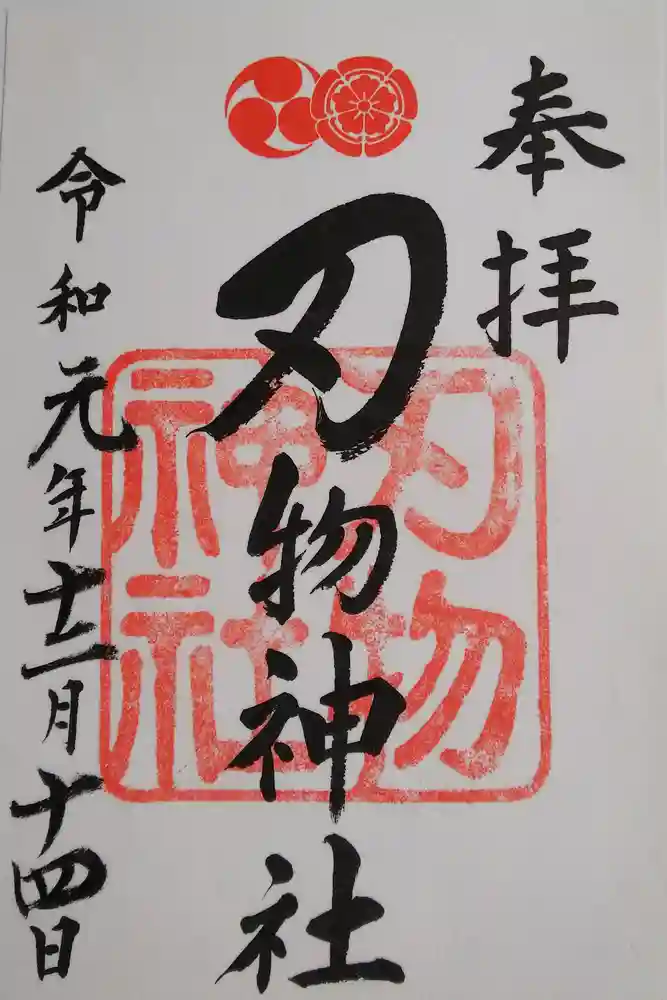 奉拝
刃物神社
刃物神社
令和元年十二月十四日